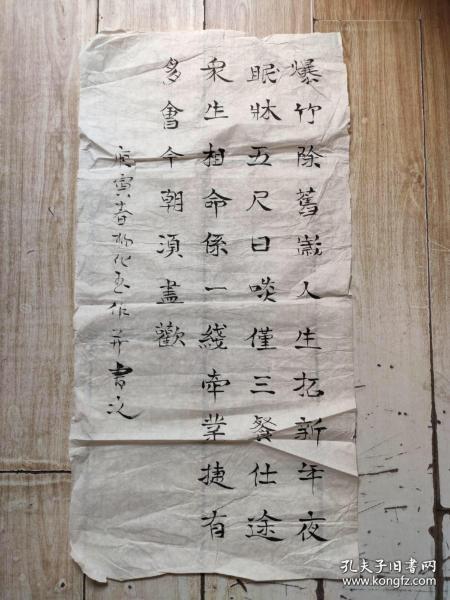 爆竹除舊歲人生拓新年夜
眠牀五尺日啖僅三餐仕途
衆生相命係一綫牽業捷有
多會今朝須盡歡
庚寅春楊化玉作并書之
孔夫子旧书网
www.kongfz.com